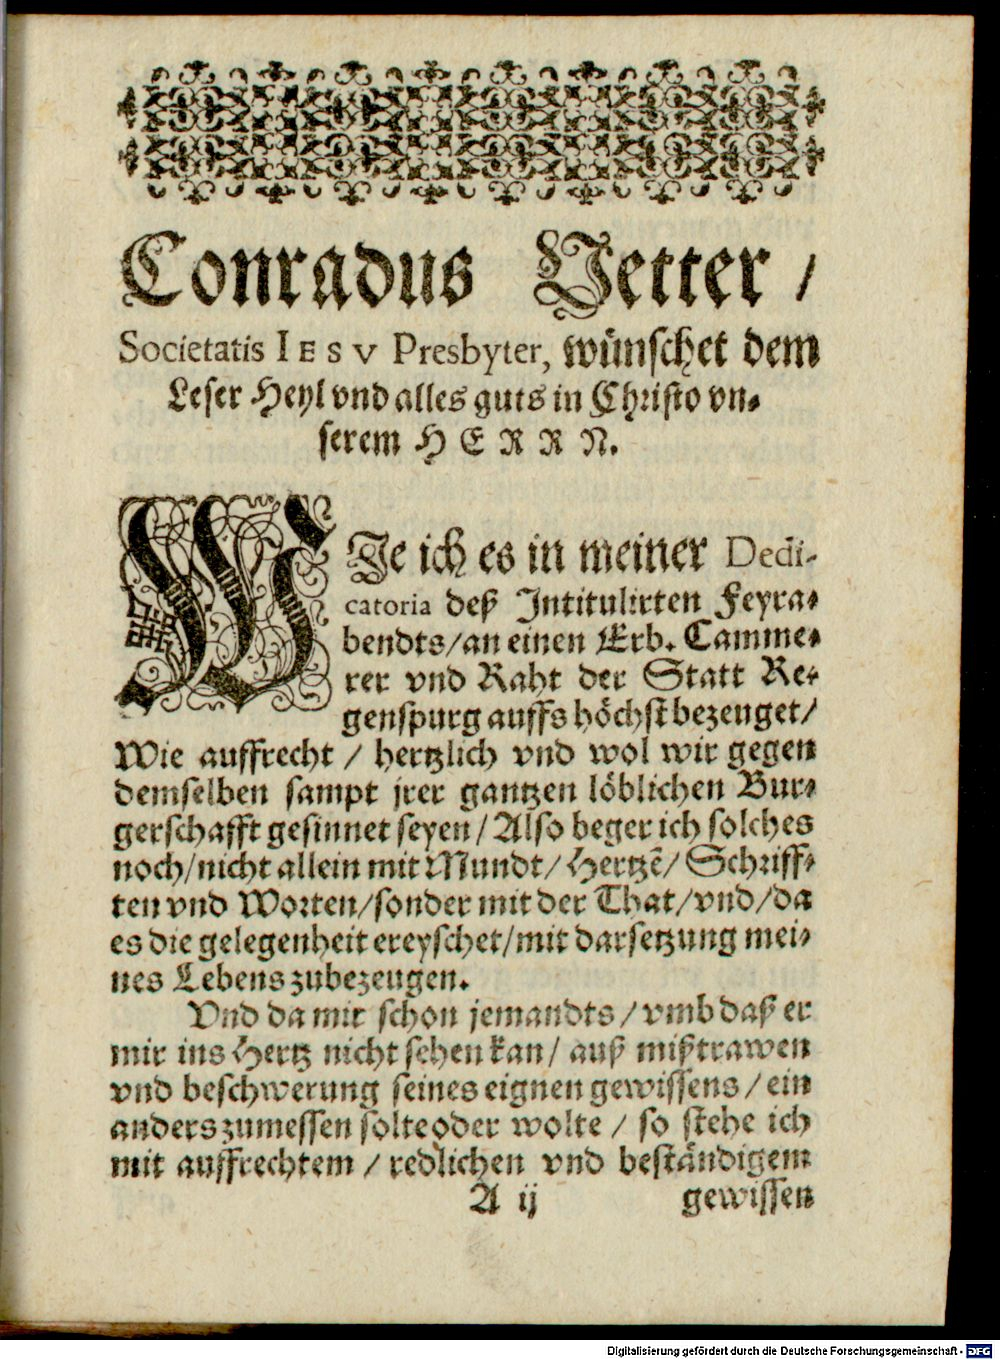 Conradus Vetter /
Societatis IESV Presbyter, wünschet dem
Leser Heyl vnd alles guts in Christo vn-
serem HERRN.
WJe ich es in meiner Dedi-
catoria deß Jntitulirten Feyra-
bendts / an einen Erb. Camme-
rer vnd Raht der Statt Re-
genspurg auffs höchst bezeuget /
Wie auffrecht / hertzlich vnd wol wir gegen
demselben sampt jrer gantzen löblichen Bur-
gerschafft gesinnet seyen / Also beger ich solches
noch / nicht allein mit Mundt / Hertzẽ / Schriff-
ten vnd Worten / sonder mit der That / vnd / da
es die gelegenheit ereyschet / mit darsetzung mei-
nes Lebens zubezeugen.
Vnd da mir schon jemandts / vmb daß er
mir ins Hertz nicht sehen kan / auß mißtrawen
vnd beschwerung seines eignen gewissens / ein
anders zumessen solte oder wolte / so stehe ich
mit auffrechtem / redlichen vnd beständigem
A ij gewissen
Digitalisierung gefördert durch die Deutsche Forschungsgemeinschaft - DFG